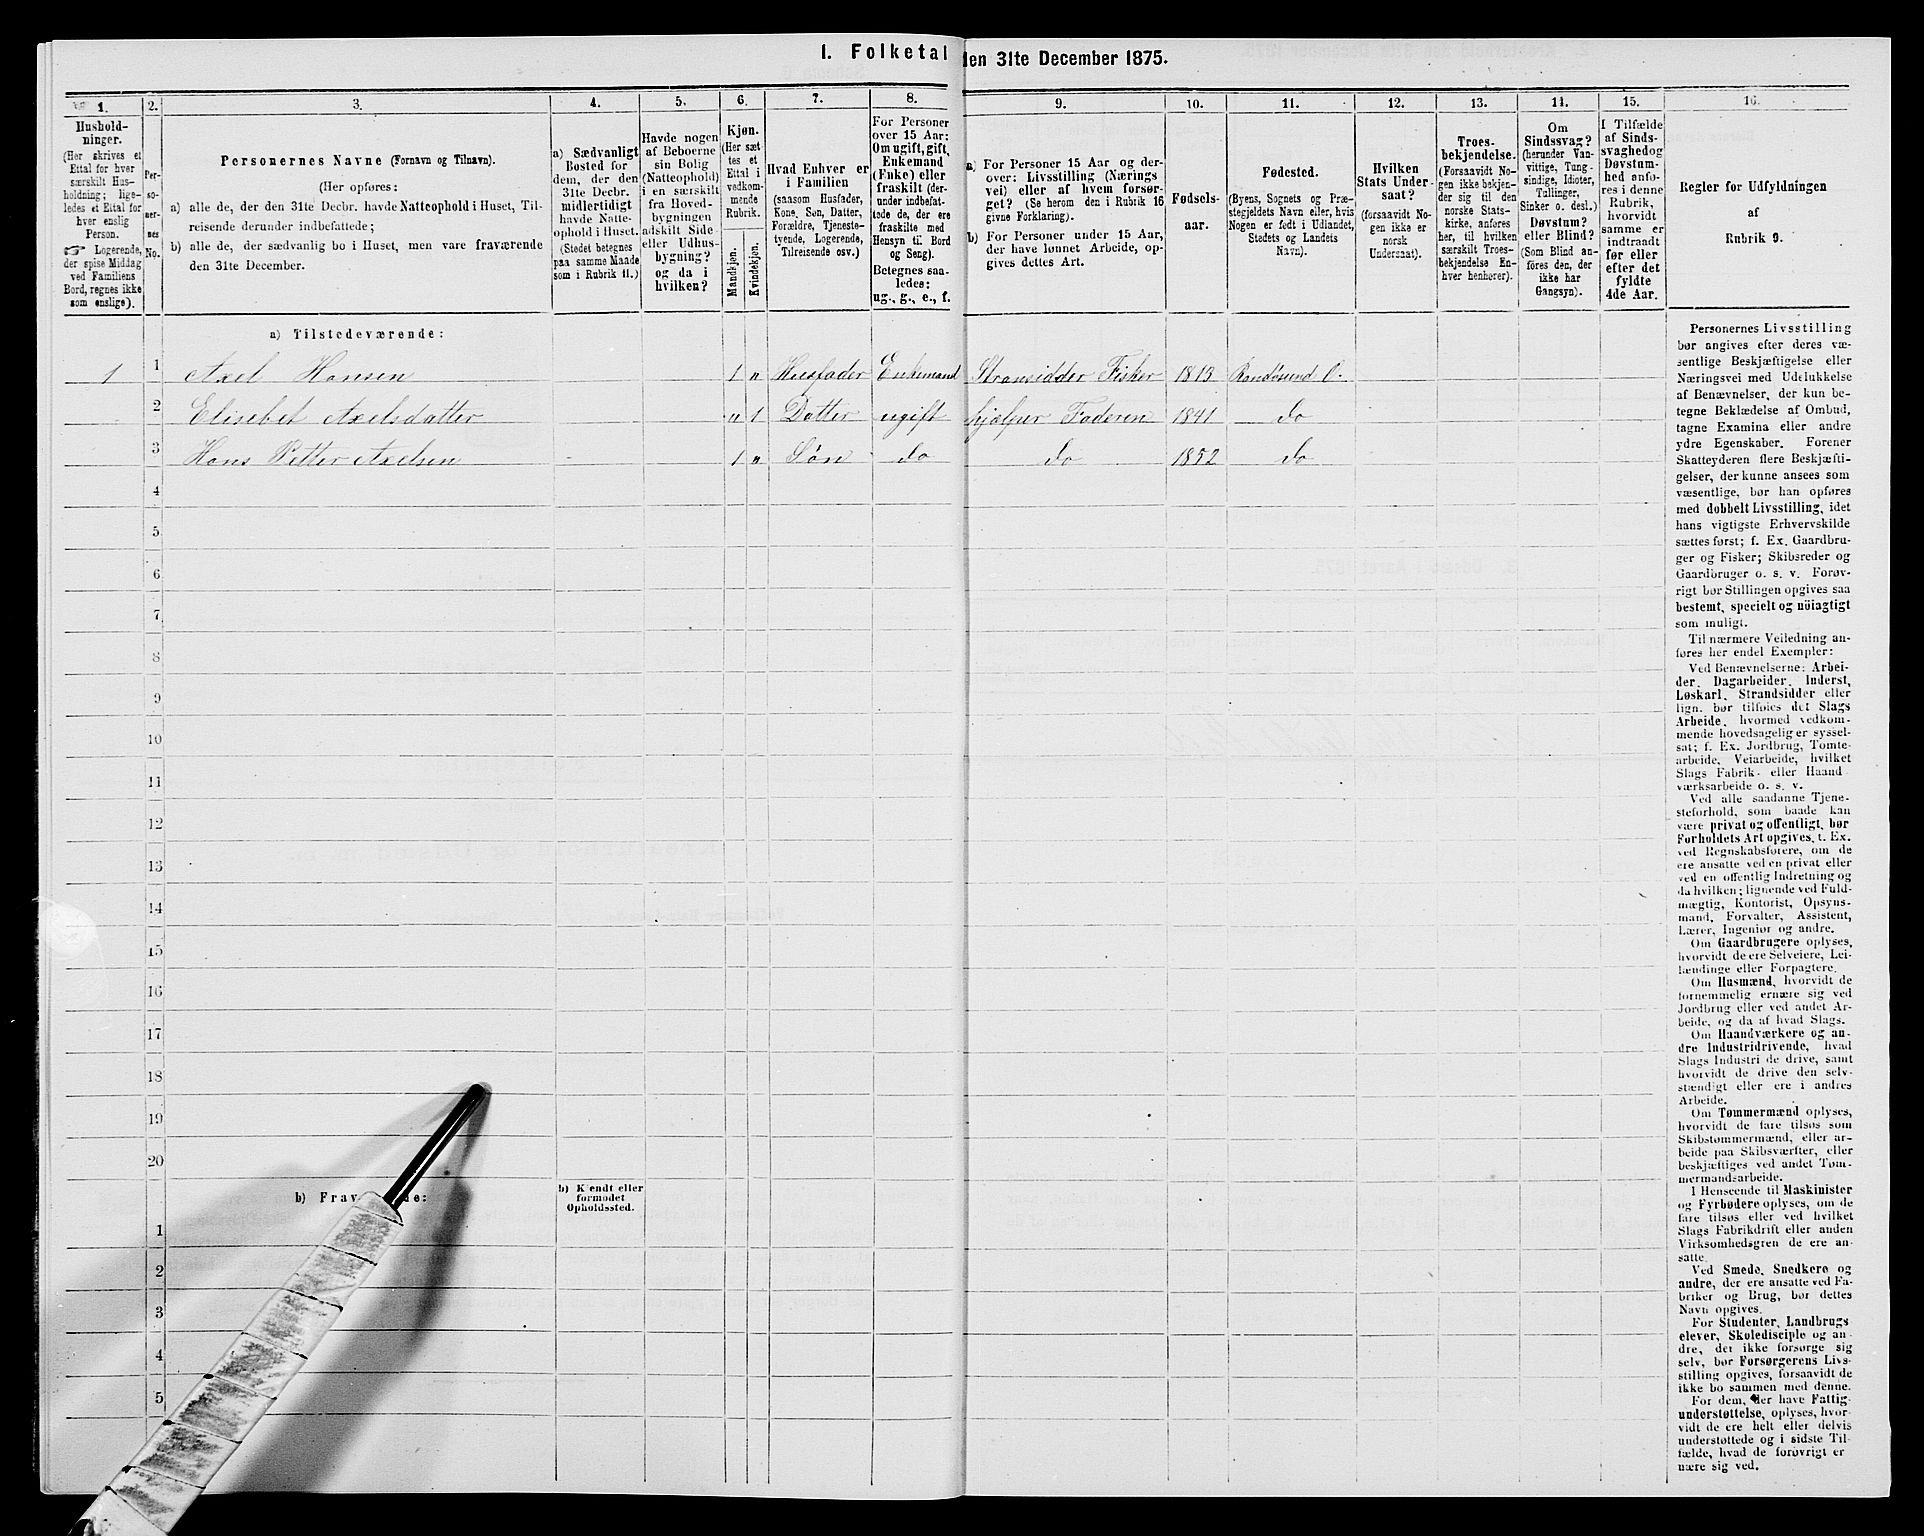 I. Folketal den 31te December 1875.
1.
2.
3.
4.
5.
6.
7.
8.
9.
10.
11.
12.
13.
14.
15.
16.
Hushold-
ninger.
(Her skrives et
Ettal for hver
særskilt Hus-
holdning; lige-
ledes et Ettal for
hver enslig
Person.
☞ Logerende,
der spise Middag
ved Familiens
Bord, regnes ikke
som enslige).
Per-
so-
ner-
nes
No.
Personernes Navne (Fornavn og Tilnavn).
(Her opføres:
a) alle de, der den 31te Decbr. havde Natteophold i Huset, Til-
reisende derunder indbefattede;
b) alle de, der sædvanlig bo i Huset, men vare fraværende
den 31te December.
a) Sædvanligt
Bosted for
dem, der den
31te Decbr.
midlertidigt
havde Natte-
ophold i Huset.
(Stedet betegnes
paa samme Maade
som i Rubrik 11.)
Havde nogen
af Beboerne
sin Bolig
(Natteophold)
i en særskilt
fra Hoved-
bygningen
adskilt Side-
eller Udhus-
bygning?
og da i
hvilken?
Kjøn.
(Her sæt-
tes et
Ettal i
vedkom-
mende
Rubrik.
Mandkjøn.
Kvindekjøn.
Hvad Enhver er
i Familien
(saasom Husfader,
Kone, Søn, Datter,
Forældre, Tjeneste-
tyende, Logerende,
Tilreisende osv.)
For Personer
over 15 Aar:
Om ugift, gift,
Enkemand
(Enke) eller
fraskilt (der-
under indbefat-
tede de, der ere
fraskilte med
Hensyn til Bord
og Seng).
Betegnes saa-
ledes:
ug., g., e., f.
a) For Personer 15 Aar og der-
over: Livsstilling (Nærings-
vei) eller af hvem forsør-
get? (Se herom den i Rubrik 16
givne Forklaring).
b) For Personer under 15 Aar,
der have lønnet Arbeide, op-
gives dettes Art.
Fødsels-
aar.
Fødested.
(Byens, Sognets og Præ-
stegjeldets Navn eller, hvis
Nogen er født i Udlandet,
Stedets og Landets
Navn).
Hvilken
Stats Under-
saat?
(forsaavidt No-
gen ikke er
norsk
Undersaat).
Troes-
bekjendelse.
(Forsaavidt No-
gen ikke bekjen-
der sig til den
norske Stats-
kirke, anføres
her, til hvilken
særskilt Troes-
bekjendelse En-
hver henhører).
Om
Sindssvag?
(herunder Van-
vittige, Tung-
sindige, Idioter,
Tullinger,
Sinker o. desl.)
Døvstum?
eller Blind?
(Som Blind an-
føres den, der
ikke har
Gangsyn).
I Tilfælde
af Sinds-
svaghed og
Døvstum-
hed anfø-
res i denne
Rubrik,
hvorvidt
samme er
indtraadt
før eller
efter det
fyldte
4de Aar.
Regler for Udfyldningen
af
Rubrik 9.
a) Tilstedeværende:
1 1 Axel Hansen 1 „ Husfader Enkemand Stransidder Fisker 1813 Randøsund O.
2 Elisebet Axelsdatter „ 1 Datter ugift hjælper Faderen 1841 do
3 Hans Petter Axelsen 1 „ Søn do do 1852 do
4
5
6
7
8
9
10
11
12
13
14
15
16
17
18
19
20
b) Frav de:
b) Kjendt eller
formodet
Opholdssted.
1
2
3
4
5
Personernes Livsstilling
bør angives efter deres væ-
sentlige Beskjæftigelse eller
Næringsvei med Udelukkelse
af Benævnelser, der kun be-
tegne Beklædelse af Ombud,
tagne Examina eller andre
ydre Egenskaber. Forener
Skatteyderen flere Beskjæfti-
gelser, der kunne ansees som
væsentlige, bør han opføres
med dobbelt Livsstilling, idet
hans vigtigste Erhvervskilde
sættes først; f. Ex. Gaardbru-
ger og Fisker; Skibsreder og
Gaardbruger o. s. v. Forøv-
rigt bør Stillingen opgives saa
bestemt, specielt og nöiagtigt
som muligt.
Til nærmere Veiledning an-
føres her endel Exempler:
Ved Benævnelserne: Arbei-
der, Dagarbeider, Inderst,
Løskarl, Strandsidder eller
lign. bør tilføies det Slags
Arbeide, hvormed vedkom-
mende hovedsagelig er syssel-
sat; f. Ex. Jordbrug, Tomte-
arbeide, Veiarbeide, hvilket
Slags Fabrik- eller Haand-
værksarbeide o. s. v.
Ved alle saadanne Tjene-
steforhold, som baade kan
være privat og offentligt, bør
Forholdets Art opgives, t. Ex.
ved Regnskabsførere, om de
ere ansatte ved en privat eller
ved en offentlig Indretning og
da hvilken; lignende ved Fuld-
mægtig, Kontorist, Opsyns-
mand, Forvalter, Assistent,
Lærer, Ingeniør og andre.
Om Gaardbrugere oplyses,
hvorvidt de ere Selveiere, Lei-
lændinge eller Forpagtere.
Om Husmænd, hvorvidt de
fornemmelig ernære sig ved
Jordbrug eller ved andet Ar-
beide, og da af hvad Slags.
Om Haandværkere og an-
dre Industridrivende, hvad
Slags Industri de drive, samt
hvorvidt de drive den selv-
stændigt eller ere i andres
Arbeide.
Om Tømmermænd oplyses,
hvorvidt de fare tilsøs som
Skibstømmermænd, eller ar-
beide paa Skibsværfter, eller
beskjæftiges ved andet Tøm-
mermandsarbeide.
I Henseende til Maskinister
og Fyrbødere oplyses, om de
fare tilsøs eller ved hvilket
Slags Fabrikdrift eller anden
Virksomhedsgren de ere an-
satte.
Ved Smede, Snedkere og
andre, der ere ansatte ved Fa-
briker og Brug, bør dettes
Navn opgives.
For Studenter, Landbrugs-
elever, Skoledisciple og an-
dre, det ikke forsørge sig
selv, bør Forsørgerens Livs-
stilling opgives, forsaavidt de
ikke bo sammen med denne.
For dem, der have Fattig-
understøttelse, oplyses, hvor-
vidt de ere helt eller delvis
understøttede og i sidste Til-
fælde, hvad de forøvrigt er-
nære sig ved.